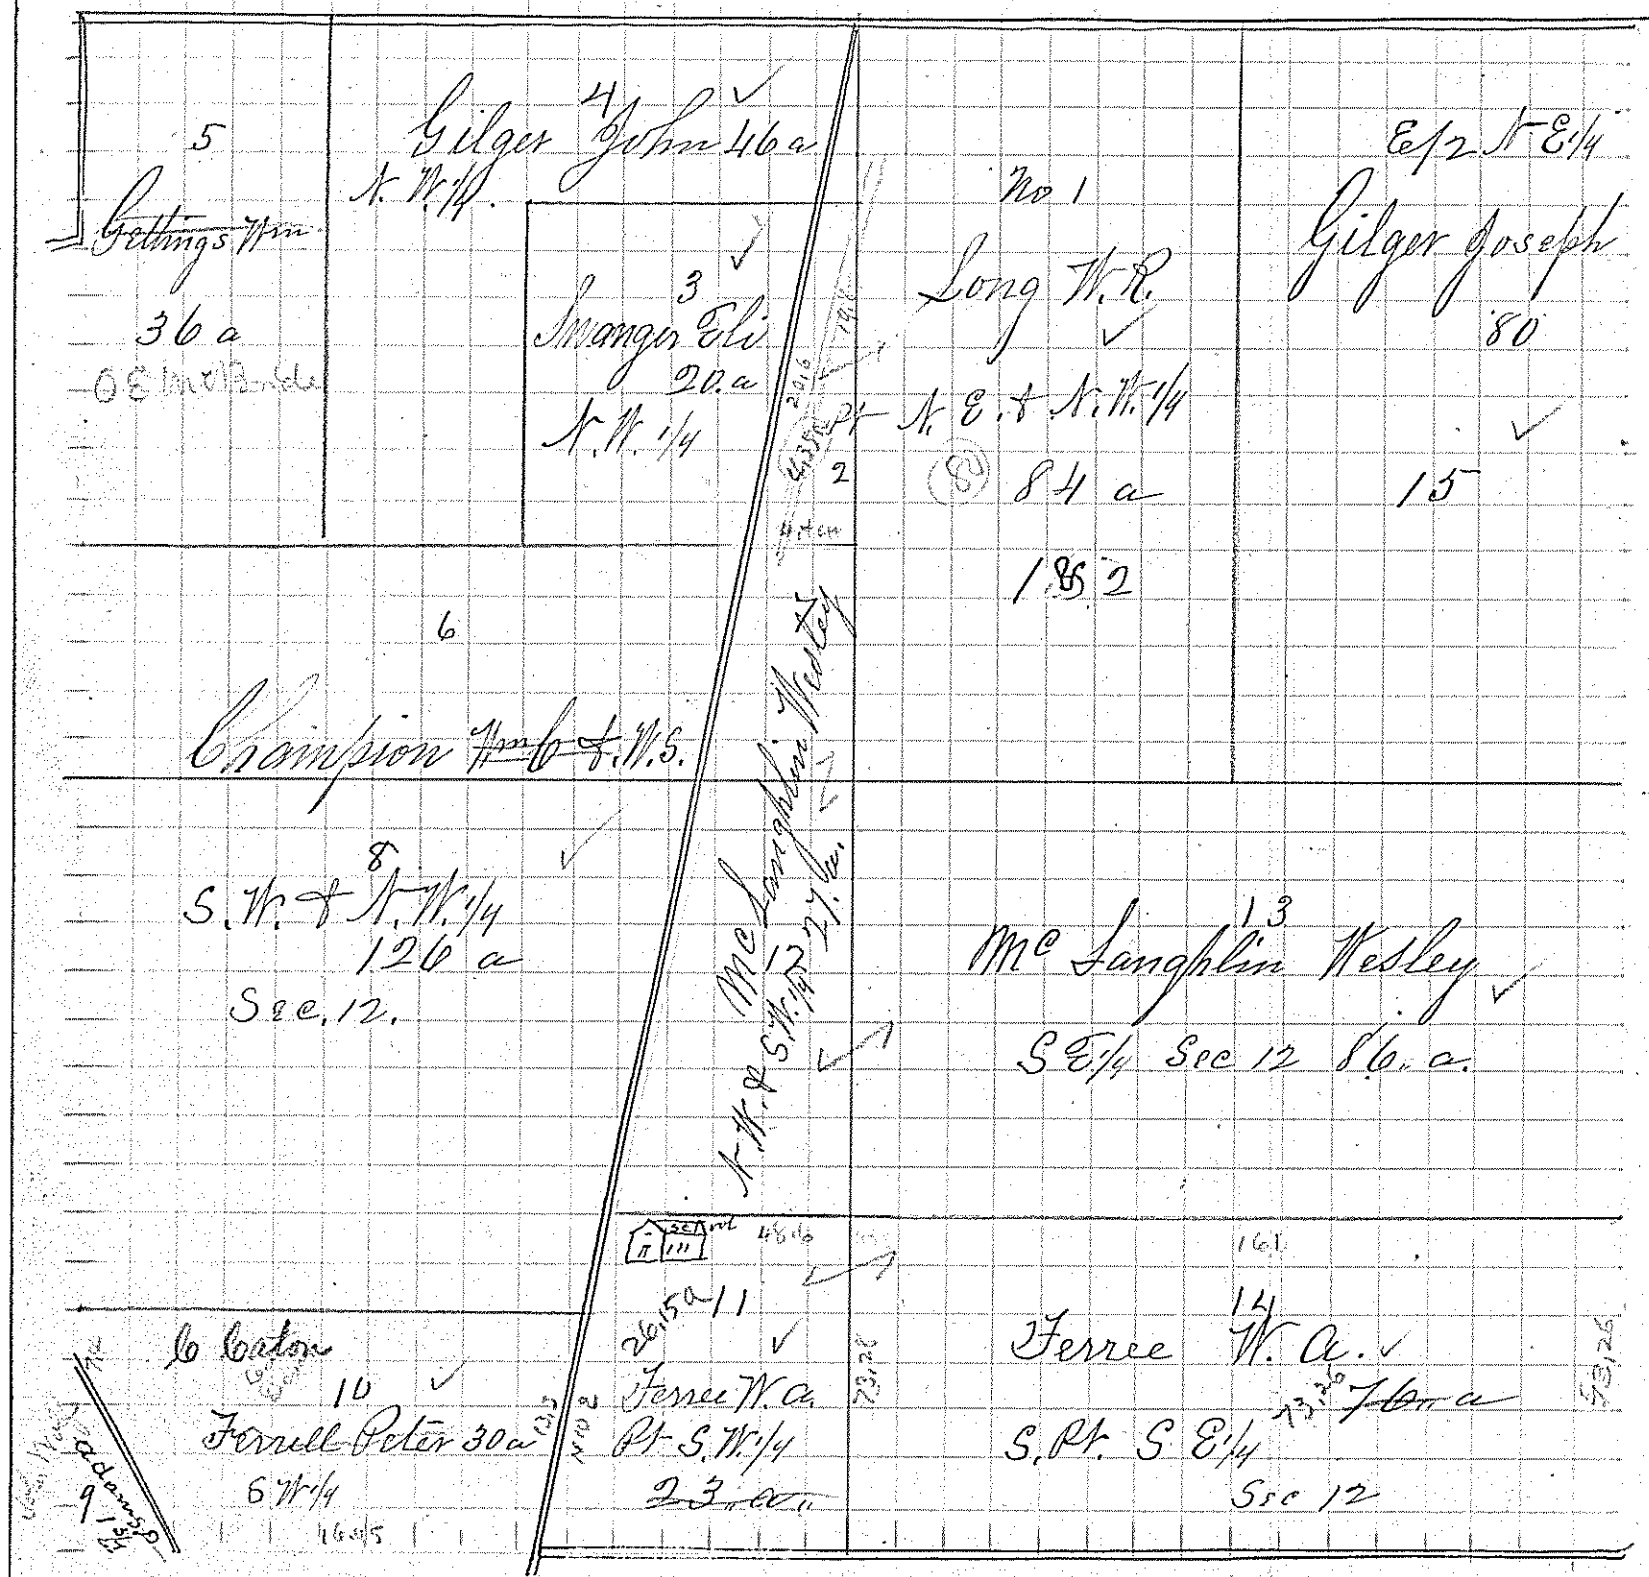 5
Gettings Wm
36 a
4
Gilger John 46 a
N. W. 1/4.
3
Swanger Eli
20. a
N. W. 1/4
2
No 1
Long W. R.
Pt N. E. & N. W. 1/4
84 a
182
E/2 N E 1/4
Gilger Joseph
80
15
6
Champion Wm C & W. S.
8
S. W. & N. W. 1/4
126 a
Sec. 12.
Mc Laughlin Wesley
12
N. W. & S. W. 1/4 27 a.
13
Mc Laughlin Wesley
S E 1/4 Sec 12 86. a.
School
48.6
161
C Caton
10
Ferrell Peter 30 a
S W 1/4
Adams P
9
26.15 a 11
Ferree W. A.
Pt S. W. 1/4
23 a.
73.26
14
Ferree W. A.
73.26 76 a
S. Pt. S E 1/4
Sec 12
73.26